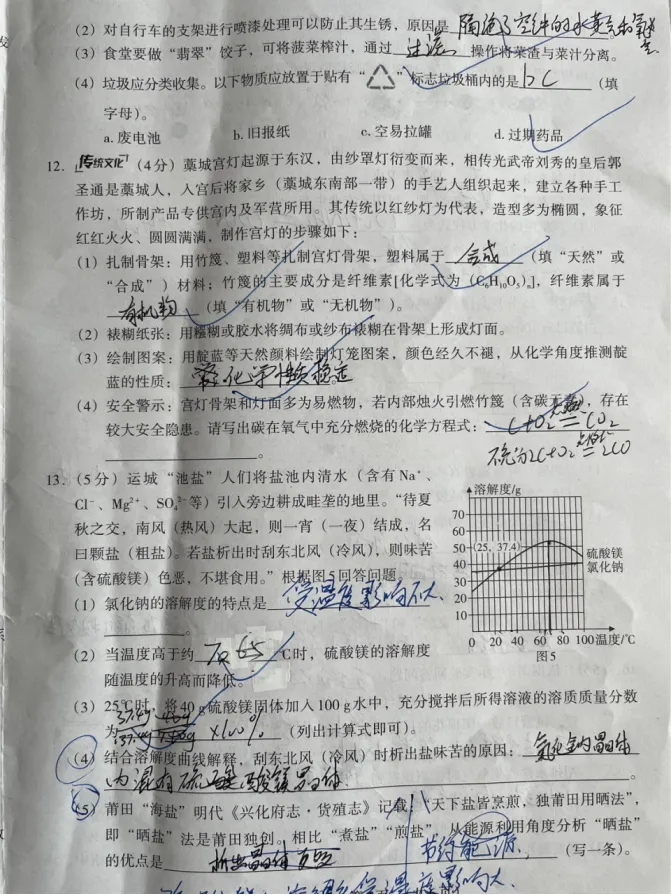 (2) 对自行车的支架进行喷漆处理可以防止其生锈，原因是 隔绝了空气中的水蒸气和氧气
(3) 食堂要做“翡翠”饺子，可将菠菜榨汁，通过 过滤 操作将菜渣与菜汁分离。
(4) 垃圾应分类收集。以下物质应放置于贴有“ ”标志垃圾桶内的是 bc （填
字母）。
a. 废电池 b. 旧报纸 c. 空易拉罐 d. 过期药品
12. 传统文化 （4分）藁城宫灯起源于东汉，由纱罩灯衍变而来，相传光武帝刘秀的皇后郭
圣通是藁城人，入宫后将家乡（藁城东南部一带）的手艺人组织起来，建立各种手工
作坊，所制产品专供宫内及军营所用。其传统以红纱灯为代表，造型多为椭圆，象征
红红火火、圆圆满满，制作宫灯的步骤如下：
(1) 扎制骨架：用竹篾、塑料等扎制宫灯骨架，塑料属于 合成 （填“天然”或
“合成”）材料；竹篾的主要成分是纤维素[化学式为 (C₆H₁₀O₅)ₙ]，纤维素属于
有机物 （填“有机物”或“无机物”）。
(2) 裱糊纸张：用糨糊或胶水将绸布或纱布裱糊在骨架上形成灯面。
(3) 绘制图案：用靛蓝等天然颜料绘制灯笼图案，颜色经久不褪，从化学角度推测靛
蓝的性质： 化学性质稳定
(4) 安全警示：宫灯骨架和灯面多为易燃物，若内部烛火引燃竹篾（含碳元素），存在
较大安全隐患。请写出碳在氧气中充分燃烧的化学方程式： C+O₂ 点燃 = CO₂
2C+O₂ 点燃 = 2CO
。
13. （5分）运城“池盐”人们将盐池内清水（含有 Na⁺、
Cl⁻、Mg²⁺、SO₄²⁻等）引入旁边耕成畦垄的地里。“待夏
秋之交，南风（热风）大起，则一宵（一夜）结成，名
曰颗盐（粗盐）。若盐析出时刮东北风（冷风），则味苦
（含硫酸镁）色恶，不堪食用。”根据图5回答问题
(1) 氯化钠的溶解度的特点是 受温度影响不大
。
(2) 当温度高于约 65 ℃时，硫酸镁的溶解度
随温度的升高而降低。
溶解度/g
70
60
50
40
30
20
10
(25, 37.4)
硫酸镁
氯化钠
0 20 40 60 80 100 温度/℃
图5
(3) 25℃时，将40 g硫酸镁固体加入100 g水中，充分搅拌后所得溶液的溶质质量分数
为 37.4g ×100% （列出计算式即可）。
(4) 结合溶解度曲线解释，刮东北风（冷风）时析出盐味苦的原因： 氯化钠晶体
内混有硫酸镁晶体 。
(5) 莆田“海盐”明代《兴化府志·货殖志》记载：“天下盐皆烹煎，独莆田用晒法”，
即“晒盐”法是莆田独创。相比“煮盐”“煎盐”，从能源利用角度分析“晒盐”
的优点是 析出晶体 节约能源 （写一条）。
受温度影响大